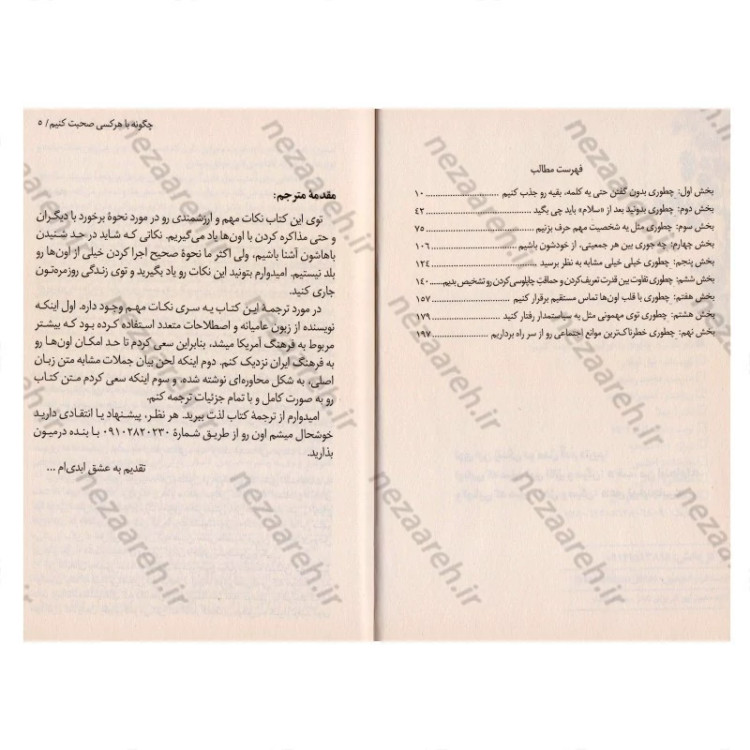 فهرست مطالب
بخش اول: چطوری بدون گفتن حتی یه کلمه، بقیه رو جذب کنیم ........ ۱۰
بخش دوم: چطوری بدونید بعد از «سلام» باید چی بگید ........ ۴۲
بخش سوم: چطوری مثل یه شخصیت مهم حرف بزنیم ........ ۷۵
بخش چهارم: چه جوری بین هر جمعیتی، از خودشون باشیم ........ ۱۰۶
بخش پنجم: چطوری خیلی خیلی مشابه به نظر برسید ........ ۱۲۴
بخش ششم: چطوری تفاوت بین قدرت تعریف‌کردن و حماقت چاپلوسی‌کردن رو تشخیص بدیم ..... ۱۴۰
بخش هفتم: چطوری با قلب اون‌ها تماس مستقیم برقرار کنیم ........ ۱۵۷
بخش هشتم: چطوری توی مهمونی مثل یه سیاستمدار رفتار کنید ........ ۱۷۹
بخش نهم: چطوری خطرناک‌ترین موانع اجتماعی رو از سر راه برداریم ........ ۱۹۷
چگونه با هرکسی صحبت کنیم / ۵
مقدمهٔ مترجم:
توی این کتاب نکات مهم و ارزشمندی رو در مورد نحوهٔ برخورد با دیگران
و حتی مذاکره کردن با اون‌ها یاد می‌گیریم. نکاتی که شاید در حد شنیدن
باهاشون آشنا باشیم، ولی اکثر ما نحوهٔ صحیح اجرا کردن خیلی از اون‌ها رو
بلد نیستیم. امیدوارم بتونید این نکات رو یاد بگیرید و توی زندگی روزمره‌تون
جاری کنید.
در مورد ترجمهٔ این کتاب یه سری نکات مهم وجود داره. اول اینکه
نویسنده از زبون عامیانه و اصطلاحات متعدد استفاده کرده بود که بیشتر
مربوط به فرهنگ آمریکا میشد، بنابراین سعی کردم تا حد امکان اون‌ها رو
به فرهنگ ایران نزدیک کنم. دوم اینکه لحن بیان جملات مشابه متن زبان
اصلی، به شکل محاوره‌ای نوشته شده، و سوم اینکه سعی کردم متن کتاب
رو به صورت کامل و با تمام جزئیات ترجمه کنم.
امیدوارم از ترجمهٔ کتاب لذت ببرید. هر نظر، پیشنهاد یا انتقادی دارید
خوشحال میشم اون رو از طریق شمارهٔ ۰۹۱۰۲۸۲۰۲۳۰ با بنده درمیون
بذارید.
تقدیم به عشق ابدی‌ام ...
nezaareh.ir